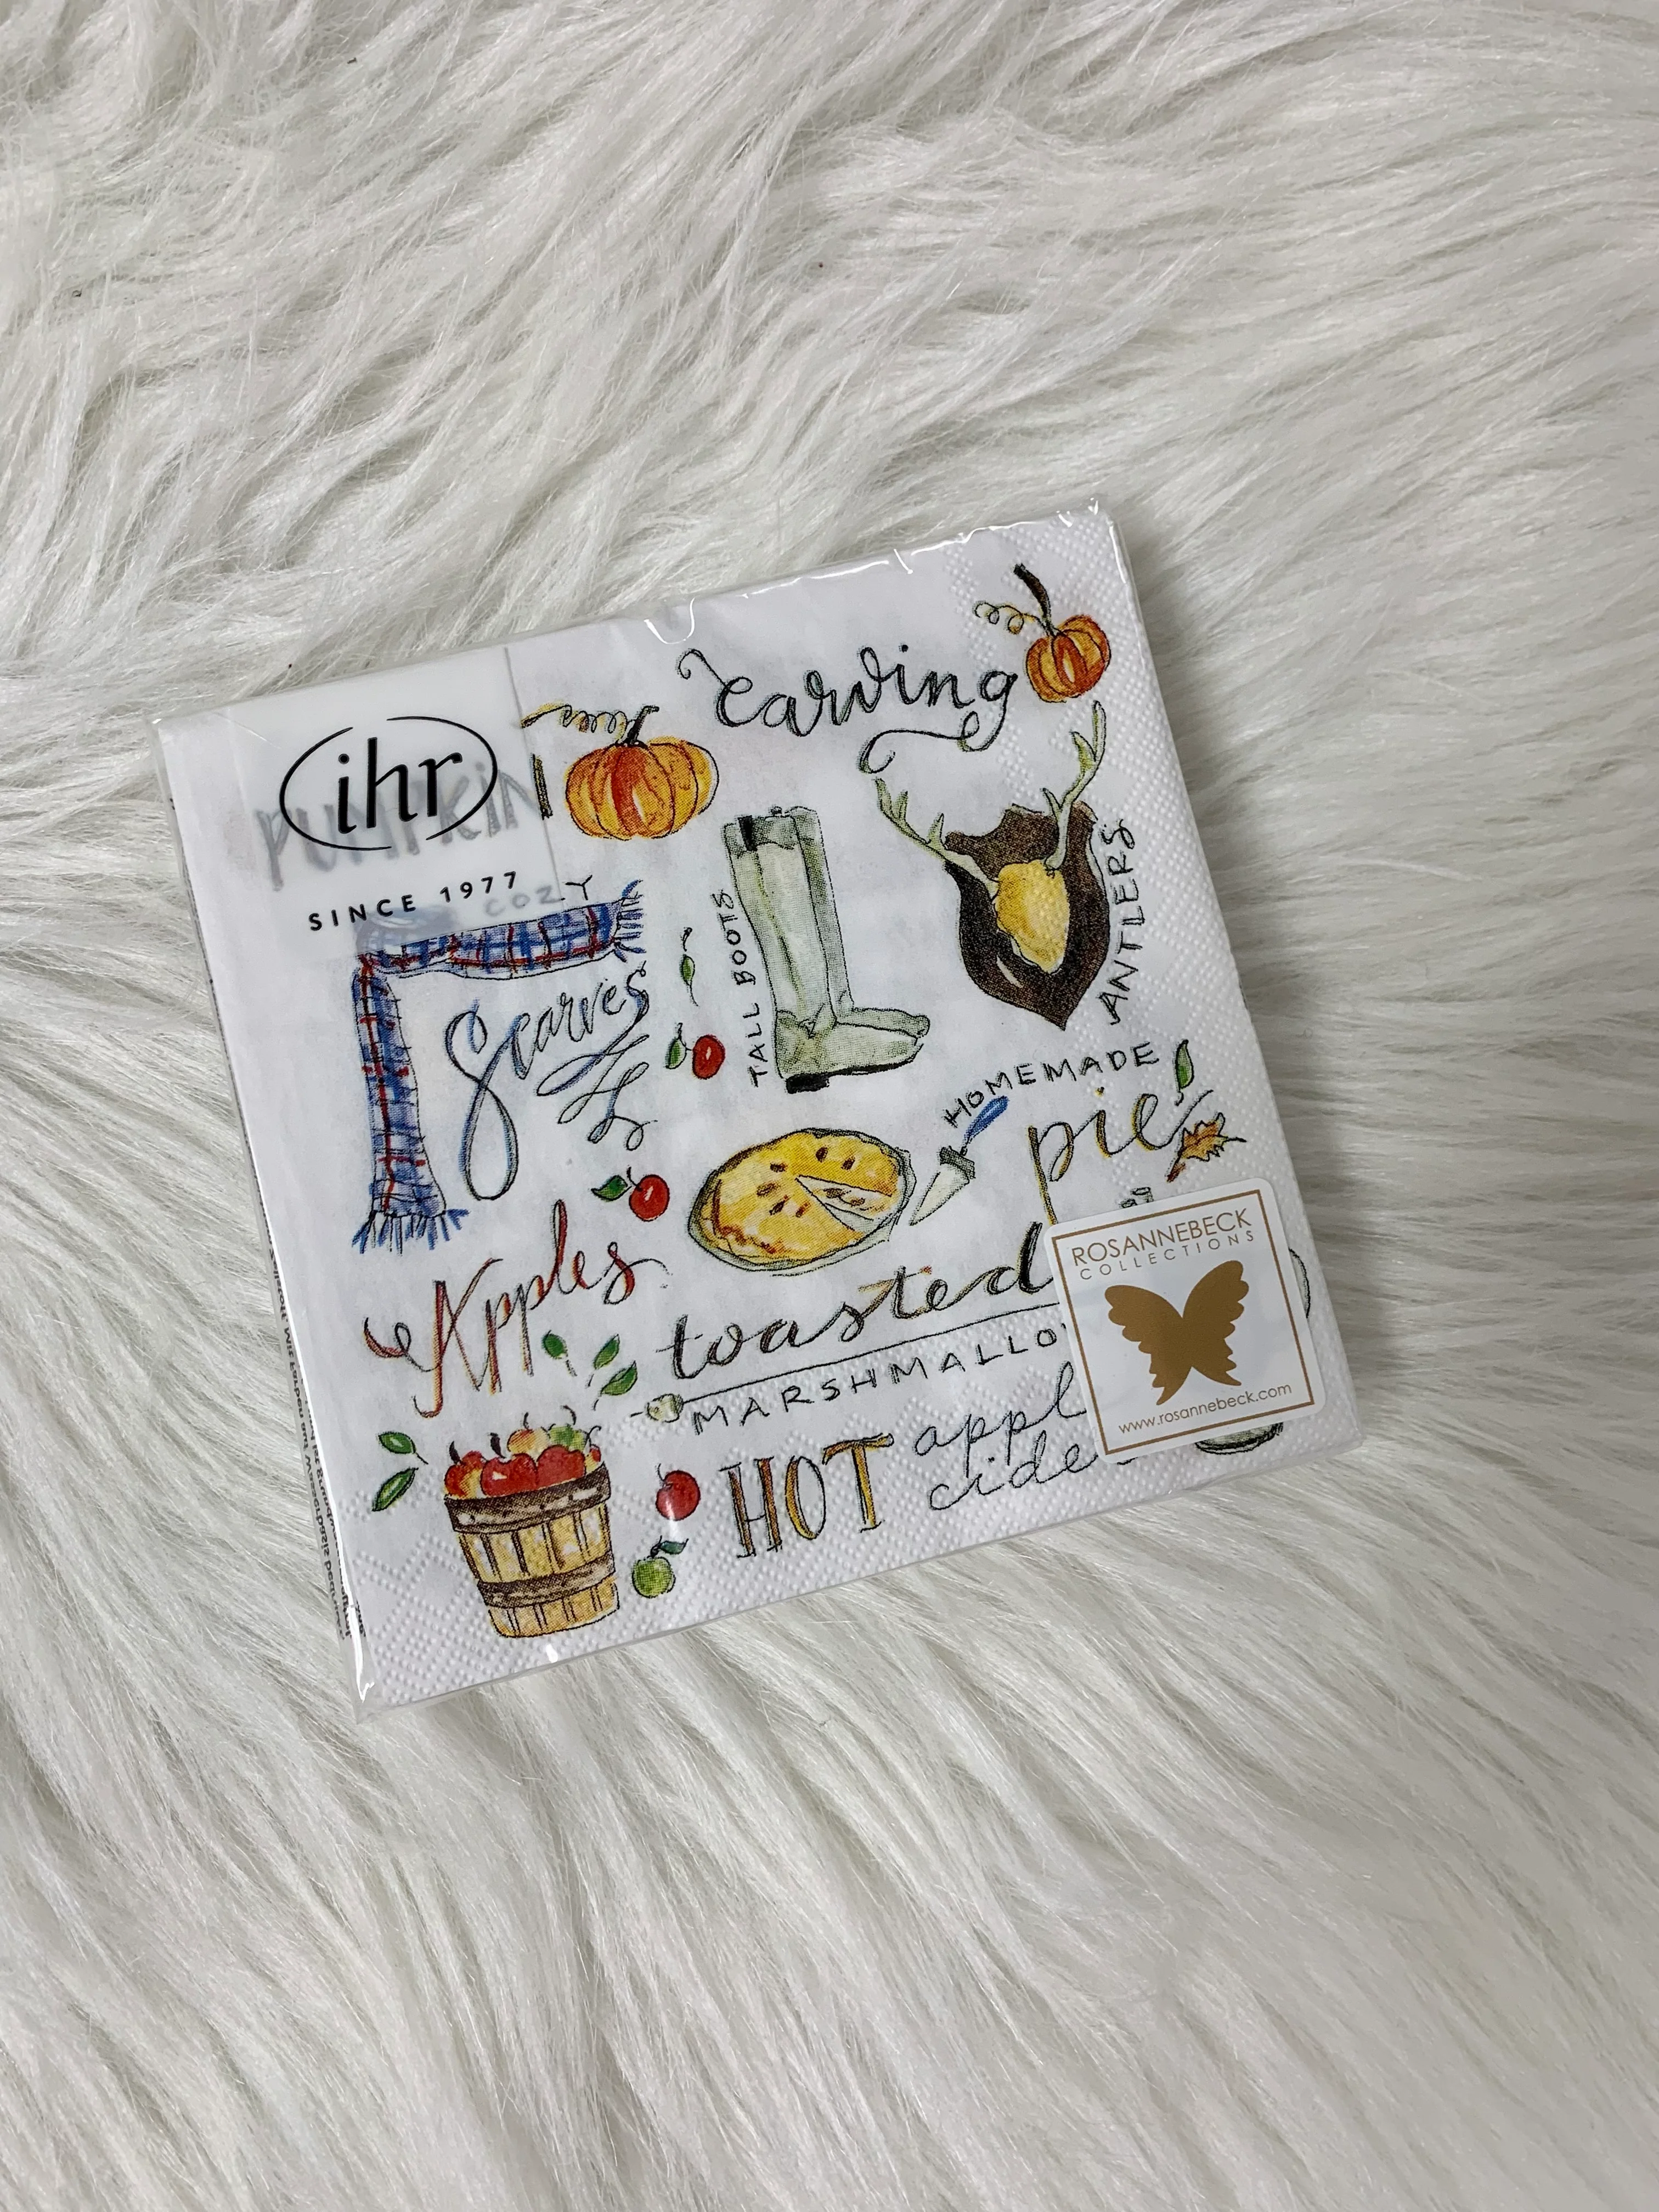 carving
ihr
PUMPKIN
SINCE 1977
COZY
Scarves
TALL BOOTS
ANTLERS
HOMEMADE
pie
Apples
toasted
MARSHMALLO
HOT appl
cide
ROSANNEBECK
COLLECTIONS
www.rosannebeck.com